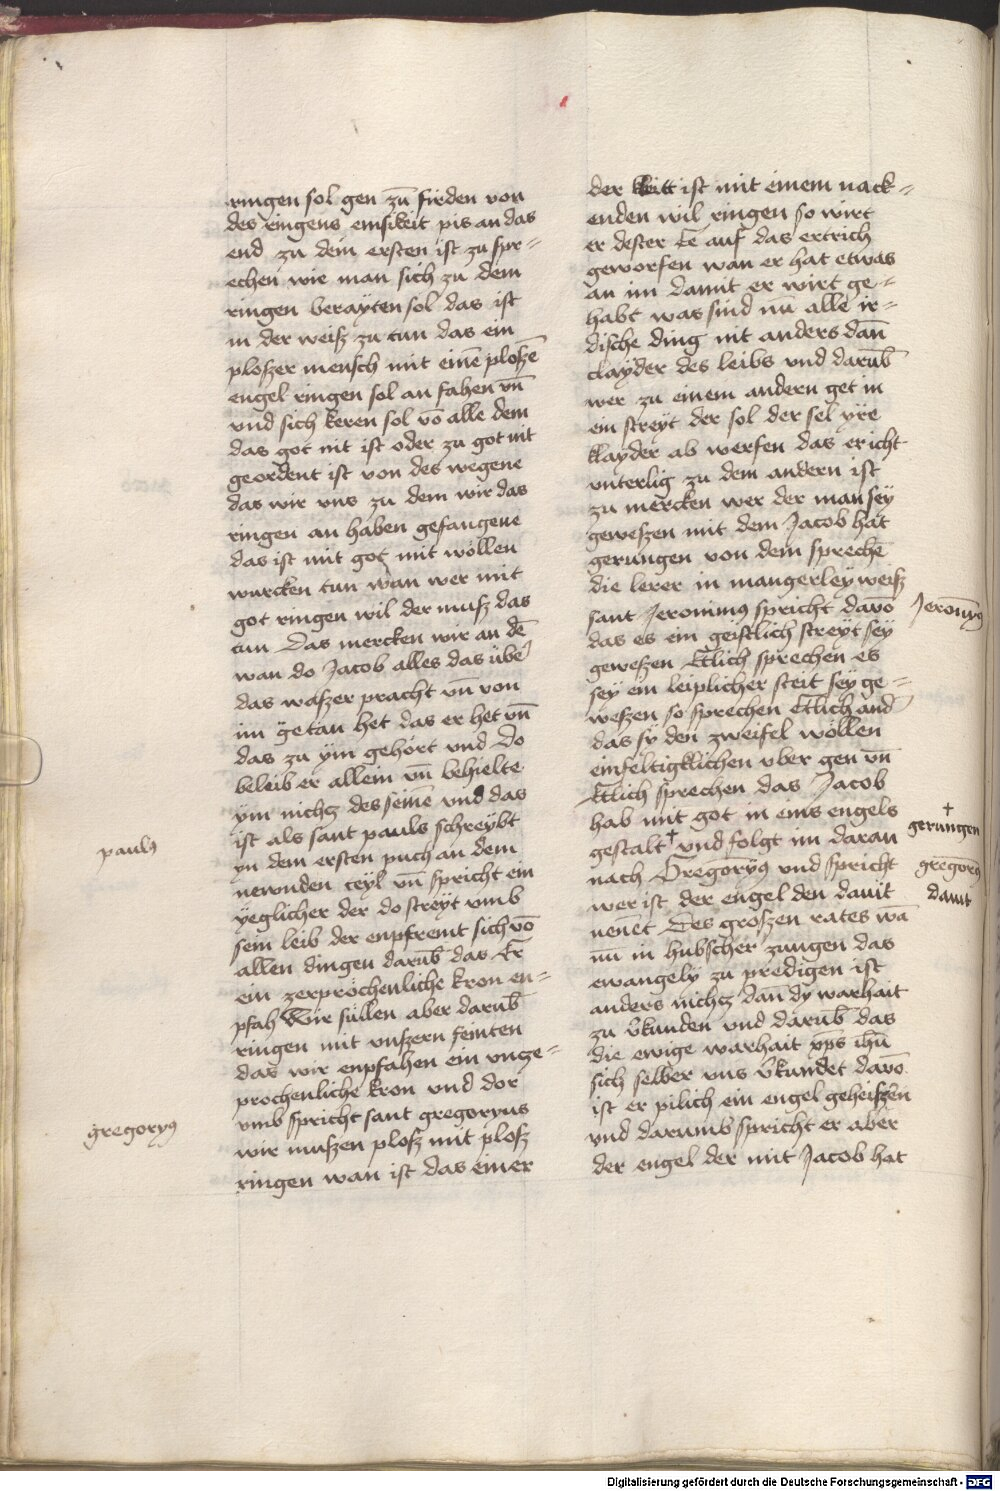 ringen sol gen zū firden von
des ringens emsikeit pis an das
end zu dem ersten ist zu spr=
echen wie man sich zu dem
ringen berayten sol das ist
in der weisz zu tun das ein
ploszer mensch mit einē ploszē
engel ringen sol an fahen vn̄
vnd sich keren sol vō alle dem
das got nit ist oder zu got nit
geordent ist von des wegene
das wir vns zu dem wir das
ringen an haben gefangene
das ist mit got mit wöllen
wurcken tun wan wer mit
got ringen wil der musz das
tun Das mercken wir an dē
wan do Jacob alles das über
das waszer pracht vn̄ von
im getan het das er het vn̄
das zu ym gehört vnd Do
beleib er allein vn̄ behielte
ym nichcz des seinē vnd das
ist als sant pauls schreybt
yn dem ersten puch an dem
newnden teyl vn̄ spricht ein
yeglicher der do streyt vmb
sein leib der enpfremt sich vō
allen dingen darūb das Er
ein zerprochenliche kron en=
pfah Wir süllen aber darūb
ringen mit vnszern feinten
das wir enpfahen ein vnze=
prochenliche kron vnd dor
vmb spricht sant gregoryus
wir muszen plosz mit plosz
ringen wan ist das einer
paulꝰ
gregoryꝰ
der ist mit einem nack=
enden wil ringen so wirt
er dester Ee auf das ertrich
geworfen wan er hat etwas
an im damit er wirt ge=
habt was sind nū alle ir=
dische ding nit anders dan̄
clayder des leibs vnd darūb
wer zu einem andern get in
ein streyt der sol der sel yre
klayder ab werfen das er icht
vnterlig zu dem andern ist
zu mercken wer der man sey
geweszen mit dem Jacob hat
gerungen von dem sprechē
die lerer in mangerley weisz
sant Jeronimꝰ spricht davō
das es ein geistlich streyt sey
geweszen Etlich sprechen es
sey ein leiplicher streit sey ge=
weszen so sprechen Etlich and
das sy den zweifel wöllen
einfeltigklichen vber gen vn̄
Etlich sprechen das Jacob
hab mit got in eins engels
gestalt + vnd folgt im daran
nach Gregoryꝰ vnd spricht
wer ist der engel den dauit
nenēt Des groszen rates wā
nū in hubscher zungen das
ewangely zu predigen ist
anders nichcz dan̄ dy warhait
zu v̄kunden vnd darūb das
die ewige warhait xp̄s ih̄u
sich selber vns v̄kundet davō
ist er pilich ein engel geheiszen
vnd darumb spricht er aber
der engel der mit Jacob hat
Jeronimꝰ
+
gerungen
gregorꝰ
dauit
Digitalisierung gefördert durch die Deutsche Forschungsgemeinschaft - DFG